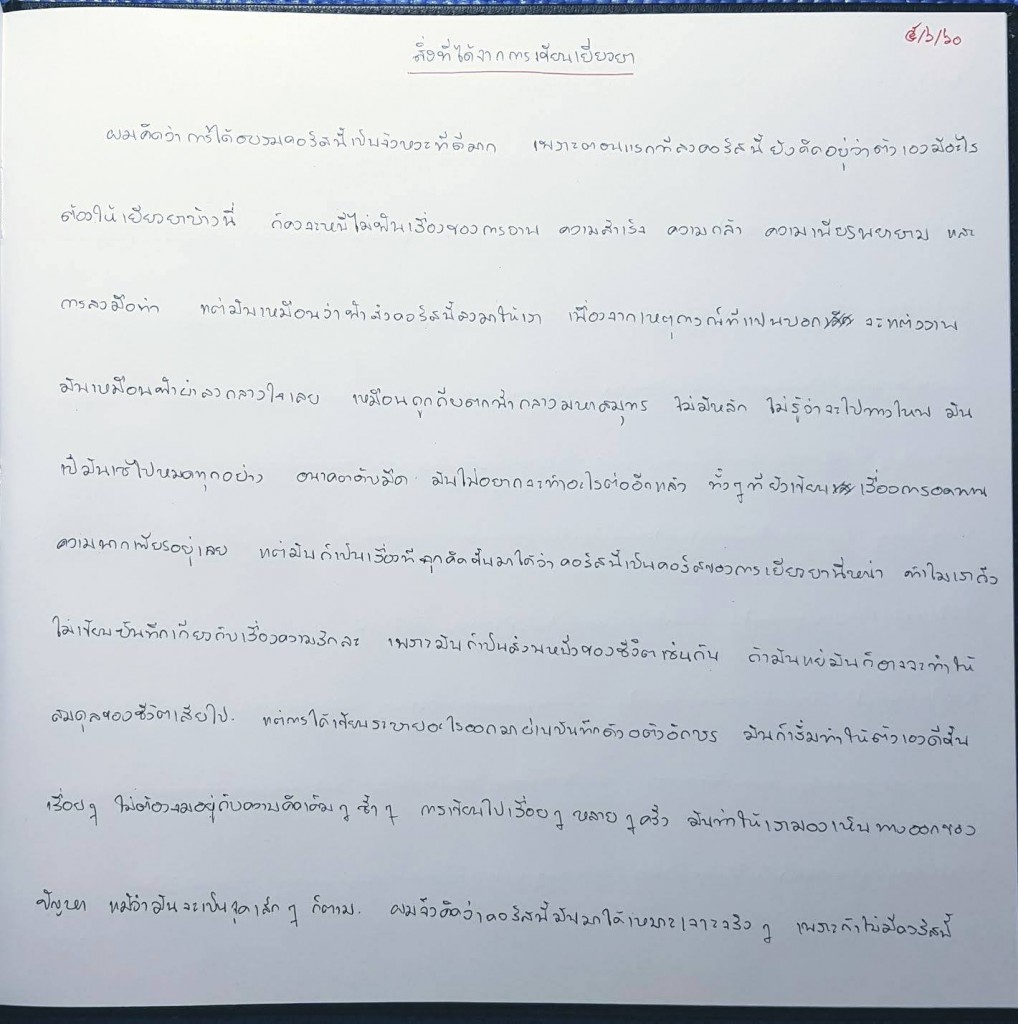 ๕/๖/๖๐
สิ่งที่ได้จากการเขียนเยียวยา
ผมคิดว่าการได้อบรมคอร์สนี้เป็นจังหวะที่ดีมาก เพราะตอนแรกที่ลงคอร์สนี้ ยังคิดอยู่ว่าตัวเองมีอะไร
ต้องให้เยียวยาบ้างนี่ ก็คงจะหนีไม่พ้นเรื่องของการงาน ความสำเร็จ ความกล้า ความเพียรพยายาม และ
การลงมือทำ แต่มันเหมือนว่าฟ้าส่งคอร์สนี้ลงมาให้เรา เนื่องจากเหตุการณ์ที่แฟนบอก จะแต่งงาน
มันเหมือนฟ้าผ่าลงกลางใจเลย เหมือนถูกถีบตกน้ำกลางมหาสมุทร ไม่มีหลัก ไม่รู้ว่าจะไปทางไหน มัน
เป๋ มันเซไปหมดทุกอย่าง อนาคตดับมืด มันไม่อยากจะทำอะไรต่ออีกแล้ว ทั้งๆ ที่ยังเขียน เรื่องการอดทน
ความพากเพียรอยู่เลย แต่มันก็เป็นเรื่องที่ฉุกคิดขึ้นมาได้ว่า คอร์สนี้เป็นคอร์สของการเยียวยานี่หน่า ทำไมเราถึง
ไม่เขียนบันทึกเกี่ยวกับเรื่องความรักละ เพราะมันก็เป็นส่วนหนึ่งของชีวิตเช่นกัน ถ้ามันแย่มันก็อาจจะทำให้
สมดุลของชีวิตเสียไป. แต่การได้เขียนระบายอะไรออกมาผ่านบันทึกด้วยตัวอักษร มันก็เริ่มทำให้ตัวเองดีขึ้น
เรื่อยๆ ไม่ต้องจมอยู่กับความคิดเดิมๆ ซ้ำๆ การเขียนไปเรื่อยๆ หลายๆ ครั้ง มันทำให้เรามองเห็นทางออกของ
ปัญหา แม้ว่ามันจะเป็นจุดเล็กๆ ก็ตาม. ผมจึงคิดว่าคอร์สนี้มันมาได้เหมาะเจาะจริงๆ เพราะถ้าไม่มีคอร์สนี้